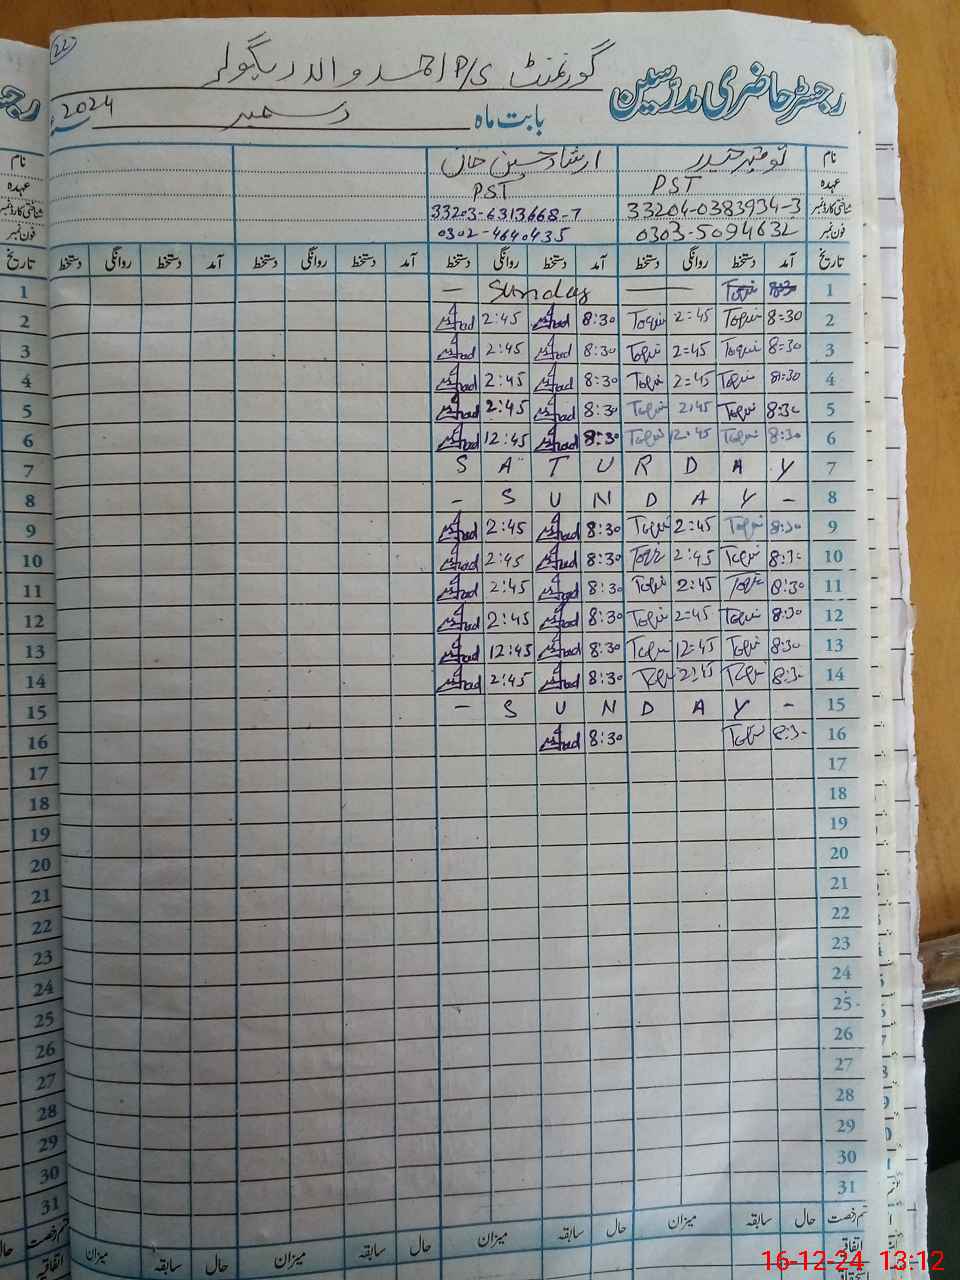 22
رجسٹر حاضری مدرسین گورنمنٹ P/S احمد والہ ریگولر
بابت ماہ دسمبر 2024
نام توقیر حیدر ارشاد حسین خان نام
عہدہ PST PST عہدہ
شناختی کارڈ نمبر 33204-0383934-3 33203-6313668-7
فون نمبر 0303-5094632 0302-4640435 فون نمبر
تاریخ آمد دستخط روانگی دستخط آمد دستخط روانگی دستخط آمد دستخط روانگی دستخط آمد دستخط روانگی دستخط تاریخ
1 8:30 Toqir — Sunday — 1
2 8=30 Toqir 2=45 Toqir 8:30 2:45 2
3 8=30 Toqir 2=45 Toqir 8:30 2:45 3
4 8=30 Toqir 2=45 Toqir 8:30 2:45 4
5 8:30 Toqir 2:45 Toqir 8:30 2:45 5
6 8:30 Toqir 12:45 Toqir 8:30 12:45 6
7 S A T U R D A Y 7
8 - S U N D A Y - 8
9 8:30 Toqir 2:45 Toqir 8:30 2:45 9
10 8:30 Toqir 2:45 Toqir 8:30 2:45 10
11 8:30 Toqir 2:45 Toqir 8:30 2:45 11
12 8:30 Toqir 2=45 Toqir 8:30 2:45 12
13 8:30 Toqir 12=45 Toqir 8:30 12:45 13
14 8:30 Toqir 2:45 Toqir 8:30 2:45 14
15 - S U N D A Y - 15
16 8:30 Toqir 8:30 16
17 17
18 18
19 19
20 20
21 21
22 22
23 23
24 24
25 25
26 26
27 27
28 28
29 29
30 30
31 31
قسم رخصت حال سابقہ میزان حال سابقہ میزان حال سابقہ میزان حال سابقہ میزان قسم رخصت
اتفاقیہ اتفاقیہ
16-12-24 13:12